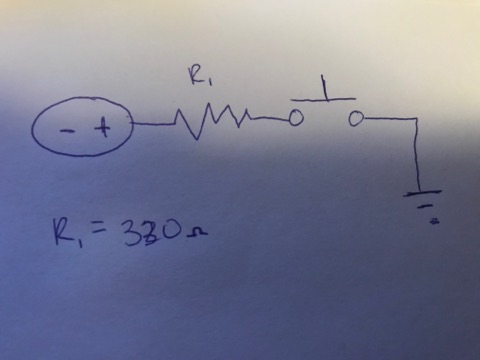 R₁
- +
R₁ = 330Ω